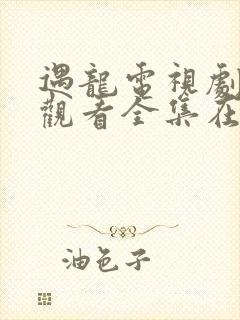 遇龍電視劇
觀看全集在
油色子